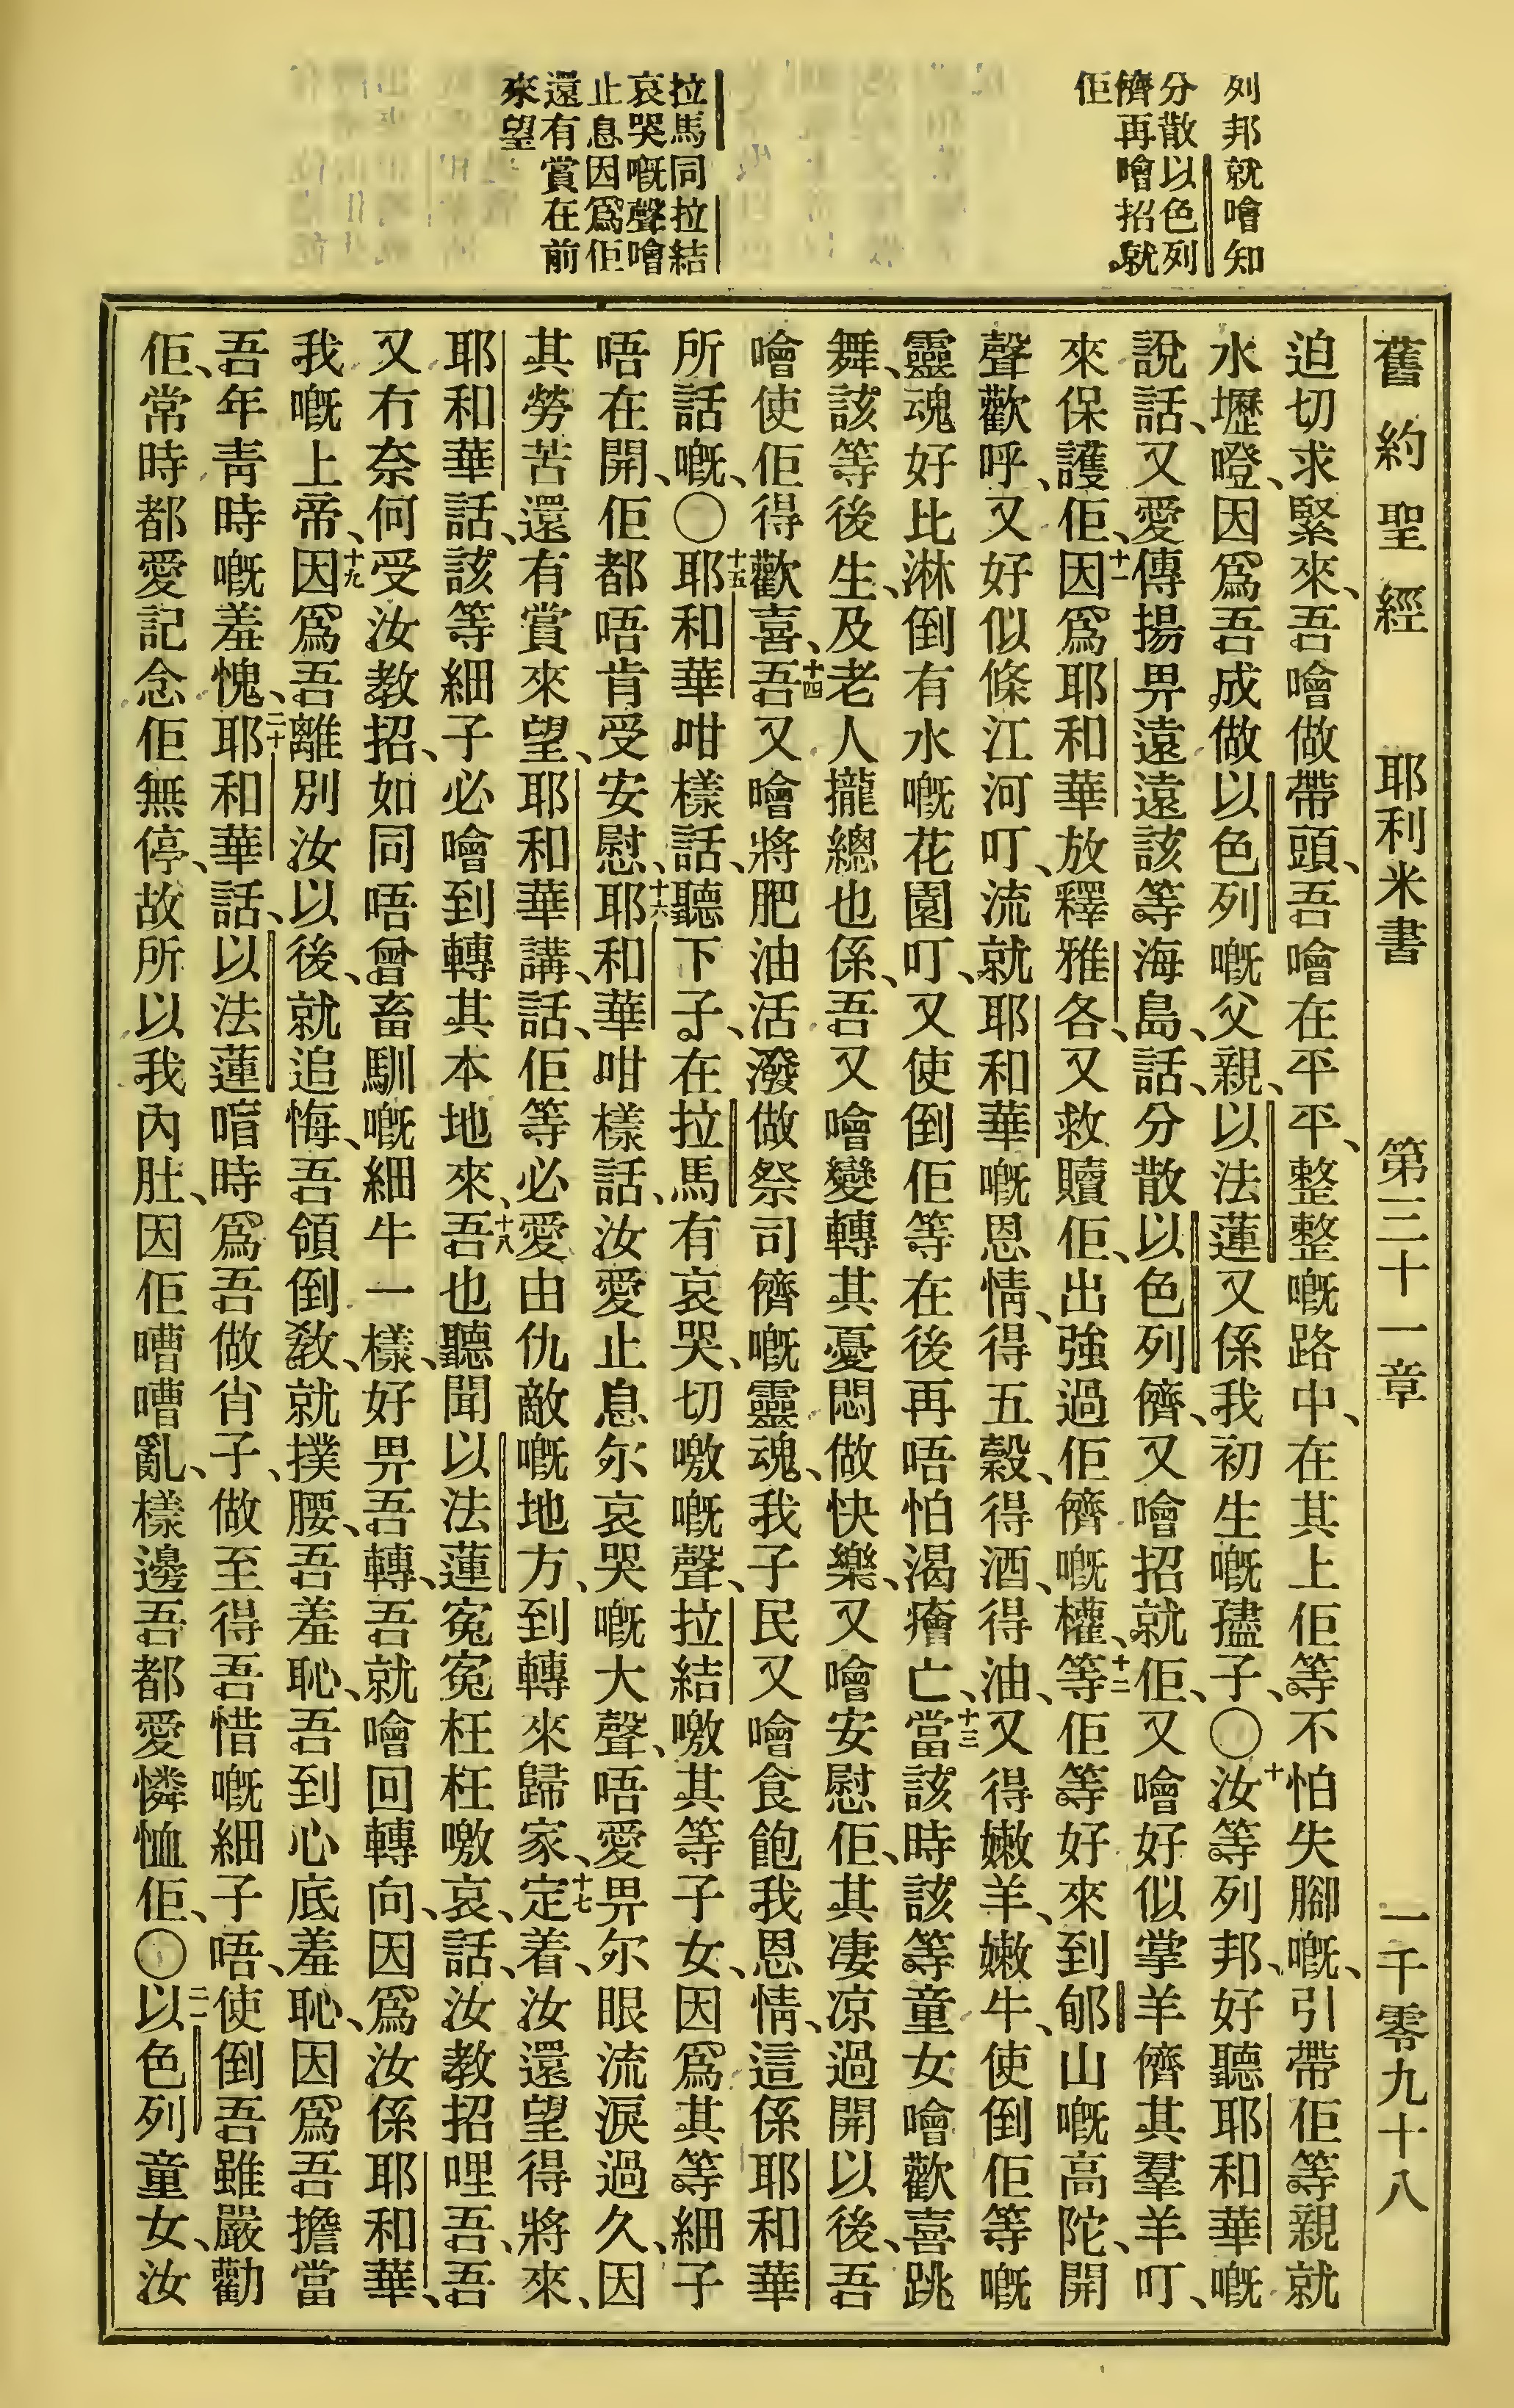 列邦就噲知
分散以色列
儕再噲招就
佢
拉馬同拉結
哀哭嘅聲噲
止息因爲佢
還有賞在前
來望
舊約聖經 耶利米書 第三十一章 一千零九十八
迫切求緊來、吾噲做帶頭、吾噲在平平、整整嘅路中、在其上佢等不怕失腳嘅、引帶佢等親就
水壢嶝、因爲吾成做以色列嘅父親、以法蓮又係我初生嘅孻子、〇十汝等列邦、好聽耶和華嘅
說話、又愛傳揚畀遠遠該等海島、話、分散以色列儕、又噲招就佢、又噲好似掌羊儕其羣羊叮、
來保護佢、十一因爲耶和華放釋雅各、又救贖佢、出強過佢儕嘅權、十二等佢等好來到郇山嘅高陀、開
聲歡呼、又好似條江河叮、流就耶和華嘅恩情、得五穀、得酒、得油、又得嫩羊、嫩牛、使倒佢等嘅
靈魂好比淋倒有水嘅花園叮、又使倒佢等在後再唔怕渴癐亡、十三當該時該等童女噲歡喜跳
舞、該等後生、及老人攏總也係、吾又噲變轉其憂悶做快樂、又噲安慰佢、其凄凉過開以後、吾
噲使佢得歡喜、十四吾又噲將肥油活潑做祭司儕嘅靈魂、我子民又噲食飽我恩情、這係耶和華
所話嘅、〇十五耶和華咁樣話、聽下子、在拉馬有哀哭、切噭嘅聲、拉結噭其等子女、因爲其等細子
唔在開、佢都唔肯受安慰、十六耶和華咁樣話、汝愛止息尔哀哭嘅大聲、唔愛畀尔眼流淚過久、因
其勞苦還有賞來望、耶和華講、話、佢等必愛由仇敵嘅地方、到轉來歸家、十七定着、汝還望得將來、
耶和華話、該等細子必噲到轉其本地來、十八吾也聽聞以法蓮寃寃枉枉噭哀、話、汝教招哩吾、吾
又冇奈何受汝教招、如同唔曾畜馴嘅細牛一樣、好畀吾轉、吾就噲回轉向、因爲汝係耶和華、
我嘅上帝、十九因爲吾離別汝以後、就追悔、吾領倒教、就撲腰、吾羞恥、吾到心底羞恥、因爲吾擔當
吾年靑時嘅羞愧、二十耶和華話、以法蓮喑時爲吾做肖子、做至得吾惜嘅細子唔、使倒吾雖嚴勸
佢、常時都愛記念佢無停、故所以我內肚、因佢嘈嘈亂、樣邊吾都愛憐恤佢、〇二一以色列童女、汝